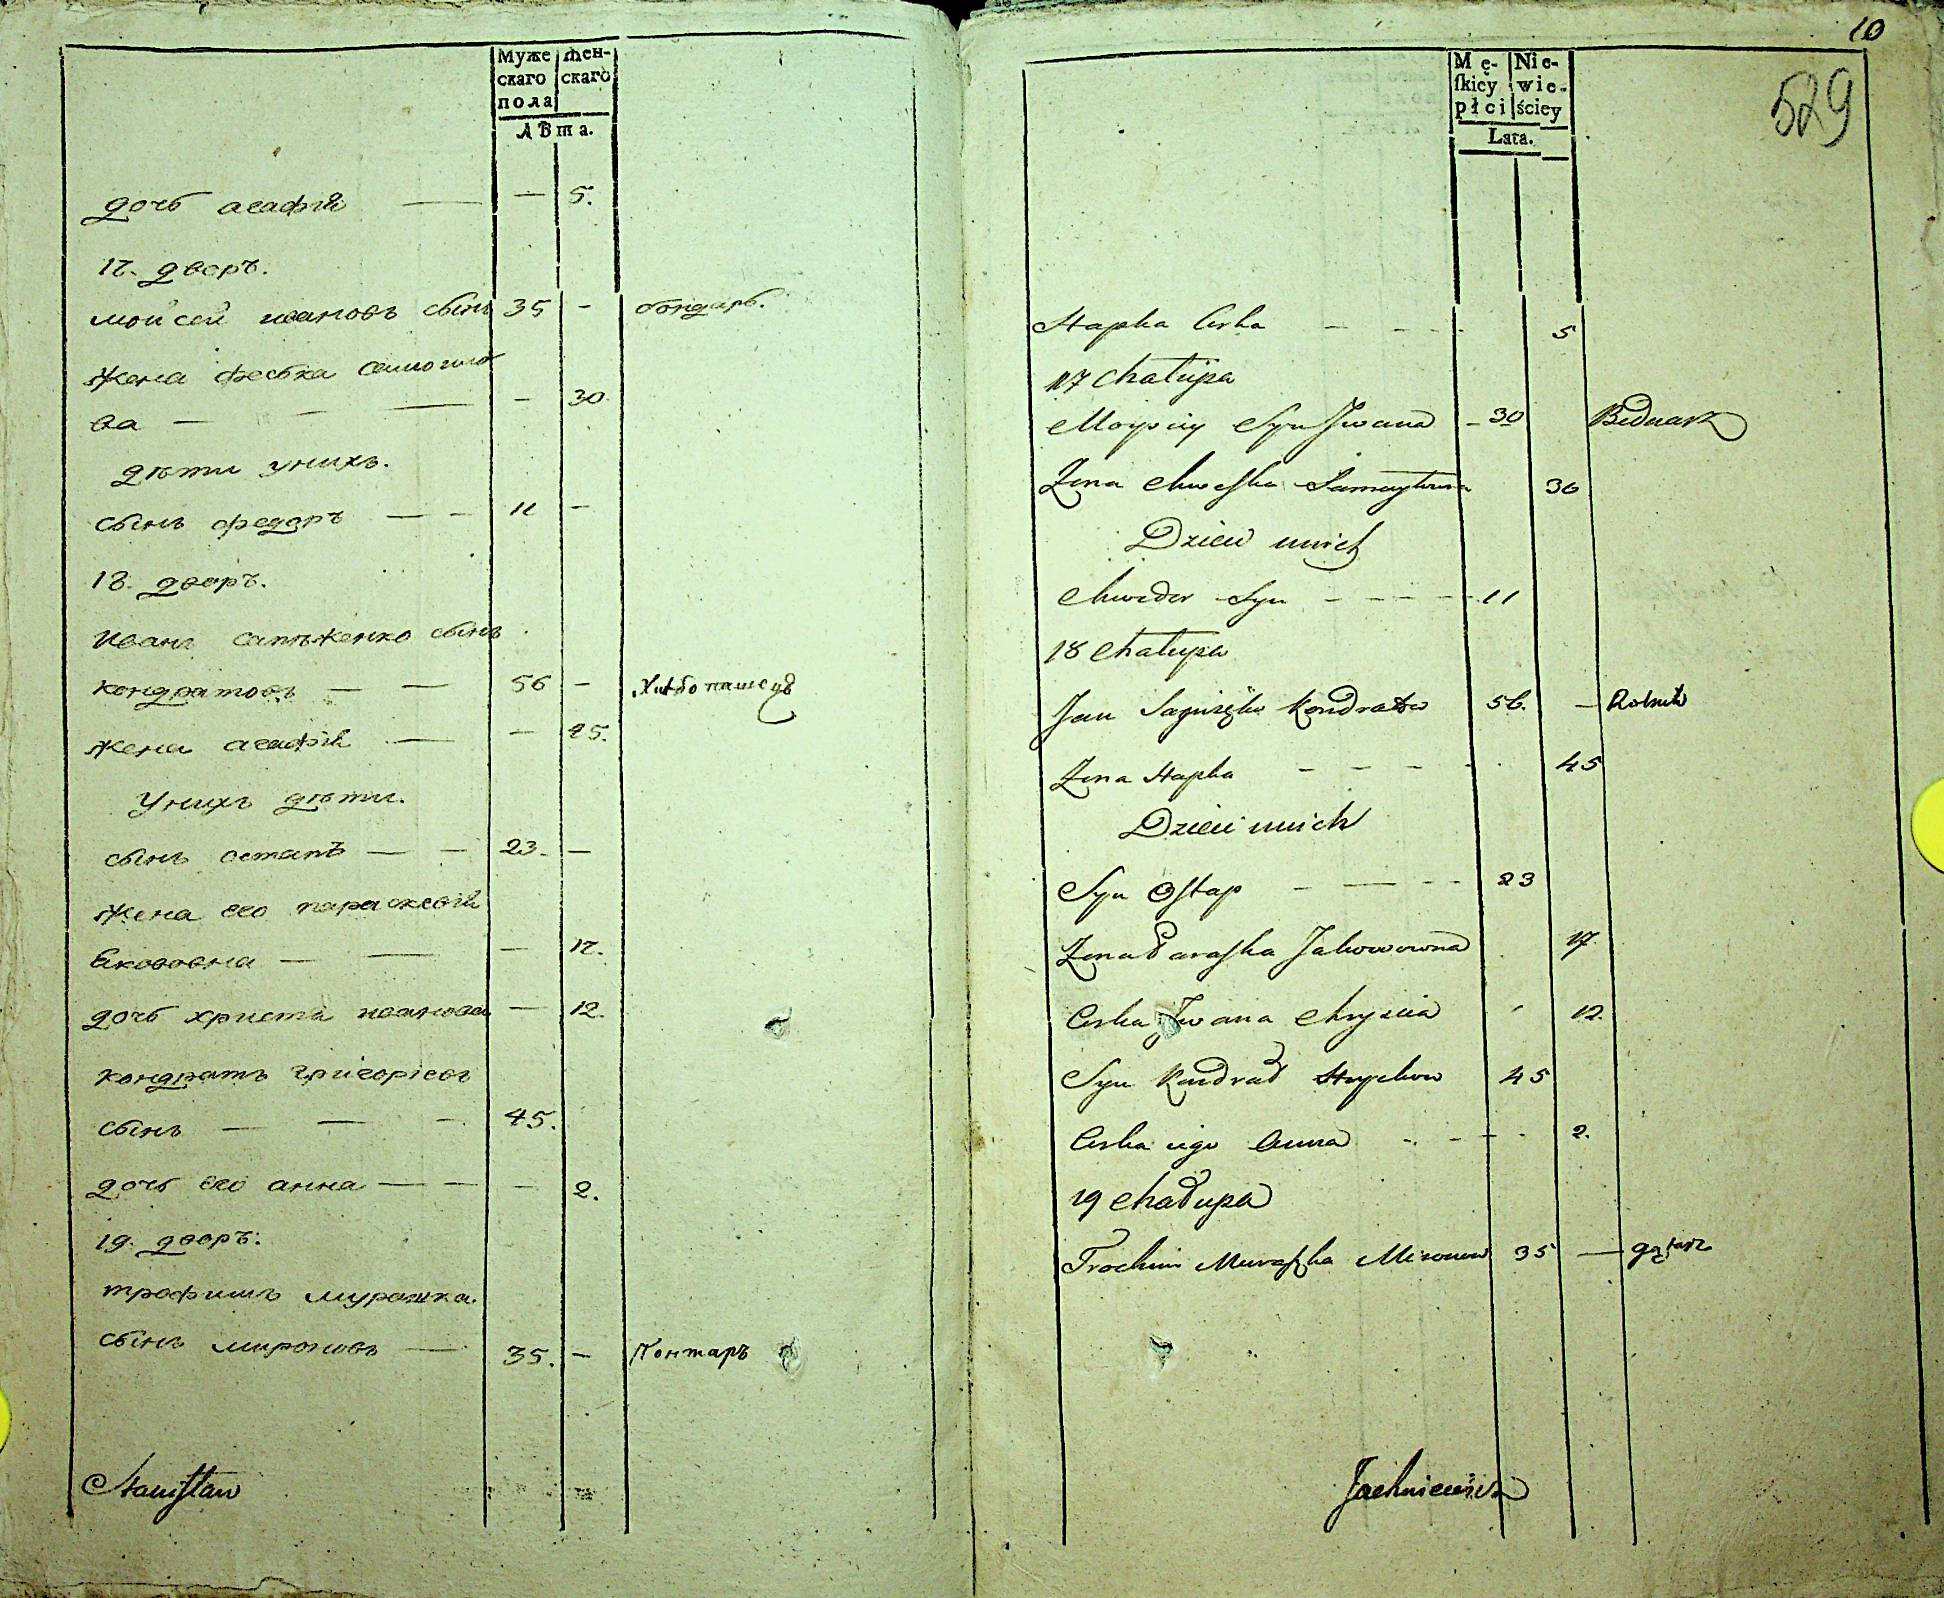 Муже скаго пола
Жен- скаго
Лѣта.
дочь агафія — — 5.
17. дворъ.
мойсей ивановъ сынъ 35 - бондарь.
жена феська самогило
ва — — — - 30
дѣти унихъ.
сынъ федоръ — — 11 -
18. дворъ.
Иванъ сапѣженко сынъ
кондратовъ — — 56 - Хлѣбопашецъ
жена агафія — — 45.
Унихъ дѣти.
сынъ остапъ — — 23. —
жена его параскевія
Якововна — — — 17.
дочь христя иванова — 12.
кондратъ григоріевъ
сынъ — — - 45.
дочь его анна — — - 2.
19. дворъ.
трофимъ мурашка
сынъ мироновъ — 35. - Гонтаръ
Staniſław
10
529
Mę- ſkiey płci
Nie- wie- ściey
Lata.
Hapka Corka - - - - 5
17 Chałupa
Moysiey Syn Jwana - 30 Bednarz
Zona Chweſka 30
Dzieci unich
Chwedor Syn - - - - 11
18 Chałupa
Jan Kondratow 56. — Rolnik
Zona Hapka - - - - 45
Dzieci unich
Syn Oſtap - — - - 23
Zona Paraſka Jakowowna 17
Corka Jwana Chryscia 12.
Syn Kondrad Hrychow 45
Corka iego Anna - - - - 2.
19 Chałupa
Trochim Muraſzka Mironow 35 — gątarz
Jachniewicz